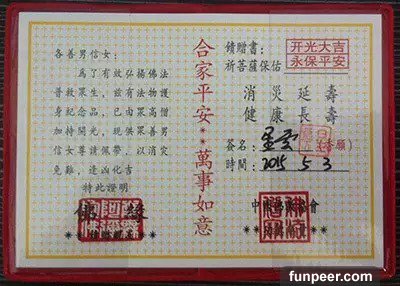 各善男信女：
為了有效弘揚佛法
普救眾生，玆有法物護
身紀念品，已由眾高僧
加持開光，現供眾善男
信女尊請佩帶，以消災
免難，逢凶化吉
特此證明
佛緣
合家平安**萬事如意
鑄贈書：
祈菩薩保佑
开光大吉
永保平安
消災延壽
健康長壽
簽名：星雲
時間：2015 5 3
中
會
funpeer.com